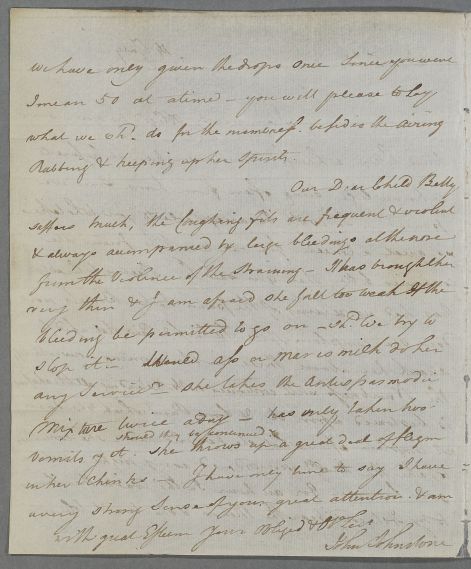 we have only given the drops once since you were
I mean 50 at a time – you will please to say
what we shd. do for the numbness besides the airing
Rubbing & keeping up her Spirits
Our Dear Child Betty
suffers much, the Coughing fits are frequent & violent
& always accompanied by large bleedings at the nose
from the Violence of the Straining – It has brought her
very thin & I am afraid she fall too weak If the
bleeding be permitted to go on – shd. we try to
stop it – Would ass or mares milk do her
any Service – she takes the Antispasmodic
Mixture twice a day – has only taken two
should they be continued
vomits yet. she throws up a great deal of flegm
in her Chinks – I have only time to say I have
a very strong Sense of your great attention & am
with great Esteem Your Obliged & Hle Sert
John Johnstone